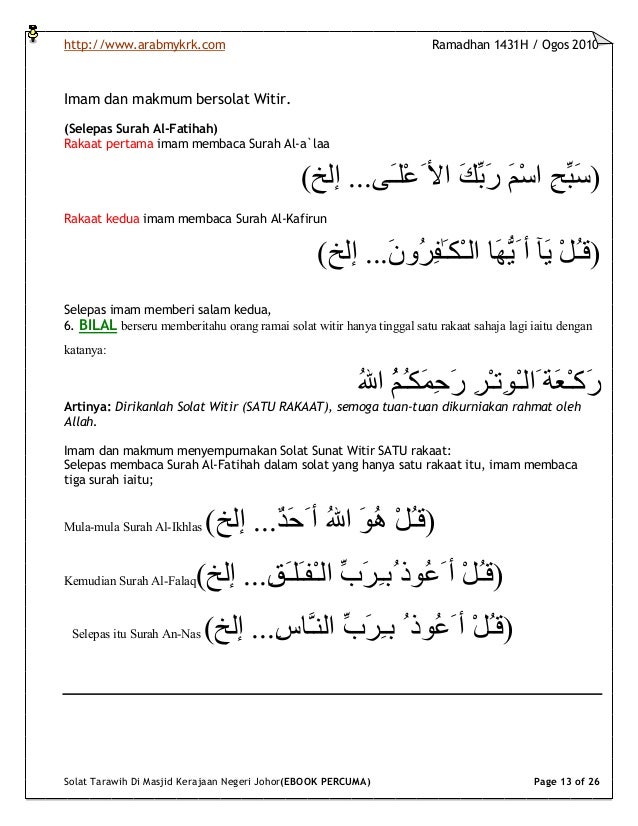 http://www.arabmykrk.com Ramadhan 1431H / Ogos 2010
Imam dan makmum bersolat Witir.
(Selepas Surah Al-Fatihah)
Rakaat pertama imam membaca Surah Al-a`laa
(سَبِّحِ اسْمَ رَبِّكَ الأَعْلَـى... إلخ)
Rakaat kedua imam membaca Surah Al-Kafirun
(قُـلْ يَآ أَيُّهَا الْـكَـٰفِرُونَ... إلخ)
Selepas imam memberi salam kedua,
6. BILAL berseru memberitahu orang ramai solat witir hanya tinggal satu rakaat sahaja lagi iaitu dengan
katanya:
رَكـْعَةَ الْـوِتـْرِ رَحِمَكـُمُ اللهُ
Artinya: Dirikanlah Solat Witir (SATU RAKAAT), semoga tuan-tuan dikurniakan rahmat oleh
Allah.
Imam dan makmum menyempurnakan Solat Sunat Witir SATU rakaat:
Selepas membaca Surah Al-Fatihah dalam solat yang hanya satu rakaat itu, imam membaca
tiga surah iaitu;
Mula-mula Surah Al-Ikhlas (قُـلْ هُوَ اللهُ أَحَدٌ... إلخ)
Kemudian Surah Al-Falaq(قُـلْ أَعُوذُ بِـرَبِّ الْـفَـلَـقِ... إلخ)
Selepas itu Surah An-Nas (قُـلْ أَعُوذُ بِـرَبِّ النـَّاسِ... إلخ)
Solat Tarawih Di Masjid Kerajaan Negeri Johor(EBOOK PERCUMA) Page 13 of 26